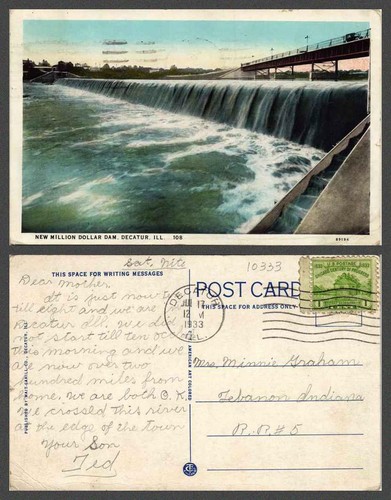 NEW MILLION DOLLAR DAM, DECATUR, ILL. 108
Sat. Nite
THIS SPACE FOR WRITING MESSAGES
10333
POST CARD
THIS SPACE FOR ADDRESS ONLY
DECATUR
JUN 17
12 M
1933
ILL.
U.S. POSTAGE
1 1
Dear Mother,
It is just now
till eight and we are
Decatur Ill. We did
not start till ten
this morning and we
are now over two
hundred miles from
home. We are both O.K.
We crossed this river
at the edge of the town
Your Son
Ted
Mrs. Minnie Graham
Lebanon Indiana
R.R.#5
AMERICAN ART COLORED